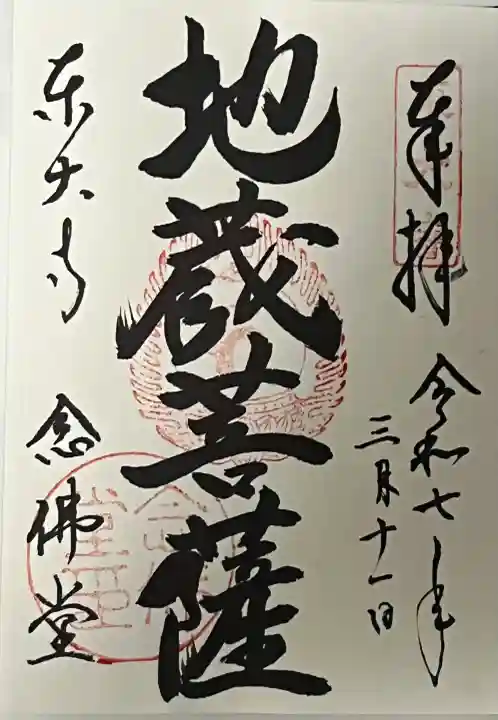 奉拝
令和七年
三月十一日
地蔵菩薩
東大寺
念佛堂